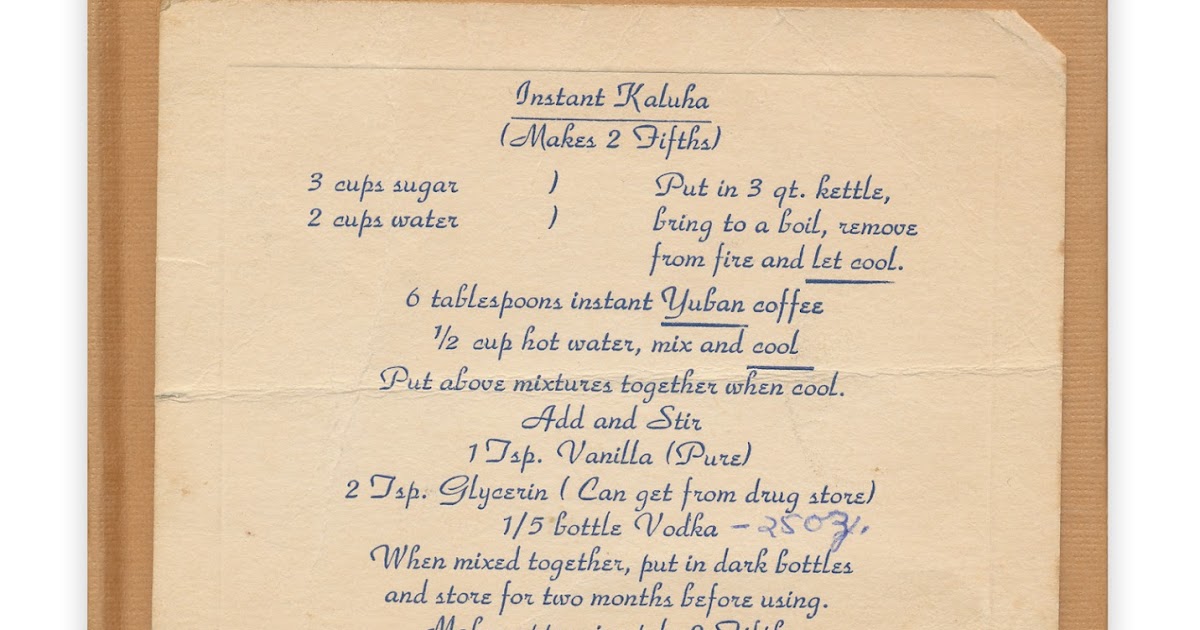 Instant Kaluha
(Makes 2 Fifths)
3 cups sugar ) Put in 3 qt. kettle,
2 cups water ) bring to a boil, remove
from fire and let cool.
6 tablespoons instant Yuban coffee
1/2 cup hot water, mix and cool
Put above mixtures together when cool.
Add and Stir
1 Tsp. Vanilla (Pure)
2 Tsp. Glycerin ( Can get from drug store)
1/5 bottle Vodka - 25 oz.
When mixed together, put in dark bottles
and store for two months before using.